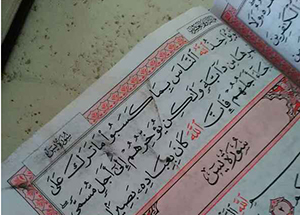 سورة يس
ٱللَّهُ ٱلنَّاسَ بِمَا كَسَبُوا۟ مَا تَرَكَ عَلَىٰ
مِن دَآبَّةٍ وَلَٰكِن يُؤَخِّرُهُمْ إِلَىٰٓ أَجَلٍ مُّسَمًّى
أَجَلُهُمْ فَإِنَّ ٱللَّهَ كَانَ بِعِبَادِهِۦ بَصِيرًۢا
سُورَةُ يسٓ